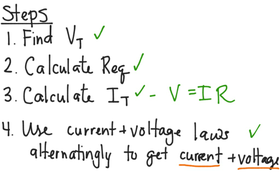 Steps
1. Find V_T ✓
2. Calculate Req ✓
3. Calculate I_T ✓ - V = IR
4. Use current + voltage laws ✓
alternatingly to get current + voltage